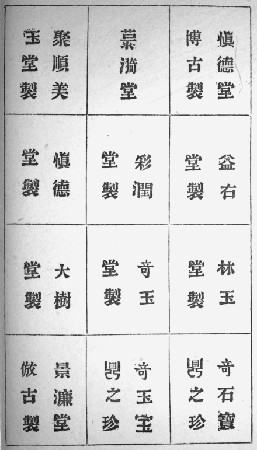 愼德堂
博古製
漪堂
聚順美
玉堂製
益右
堂製
彩潤
堂製
愼德
堂製
林玉
堂製
奇玉
堂製
大樹
堂製
奇石寶
鼎之珍
奇玉宝
鼎之珍
景濂堂
倣古製